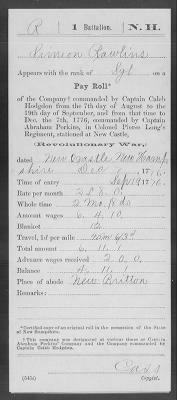 R | 1 Battalion. | N. H.
Simeon Rawlins
Appears with the rank of Sgt on a
Pay Roll*
of the Company† commanded by Captain Caleb
Hodgdon from the 7th day of August to the
19th of September, and from that time to
Dec. the 7th, 1776, commanded by Captain
Abraham Perkins, in Colonel Pierce Long's
Regiment, stationed at New Castle,
(Revolutionary War,)
dated New Castle New Hamp
shire Dec 7, 1776.
Time of entry Sept 19, 1776.
Rate per month 2.8.0
Whole time 2 Mo.
Amount wages 6.4.10
Blanket 12
Travel, 1d per mile
Total 6.11.1
Advance wages received 2.0.0
Balance 4.11.1
Place of abode New Britton
Remarks:
*Certified copy of an original roll in the possession of the State
of New Hampshire.
† This company was designated at various times as Captain
Abraham Perkins' Company and the Company commanded by
Captain Caleb Hodgdon.
Cass
(545i) Copyist.